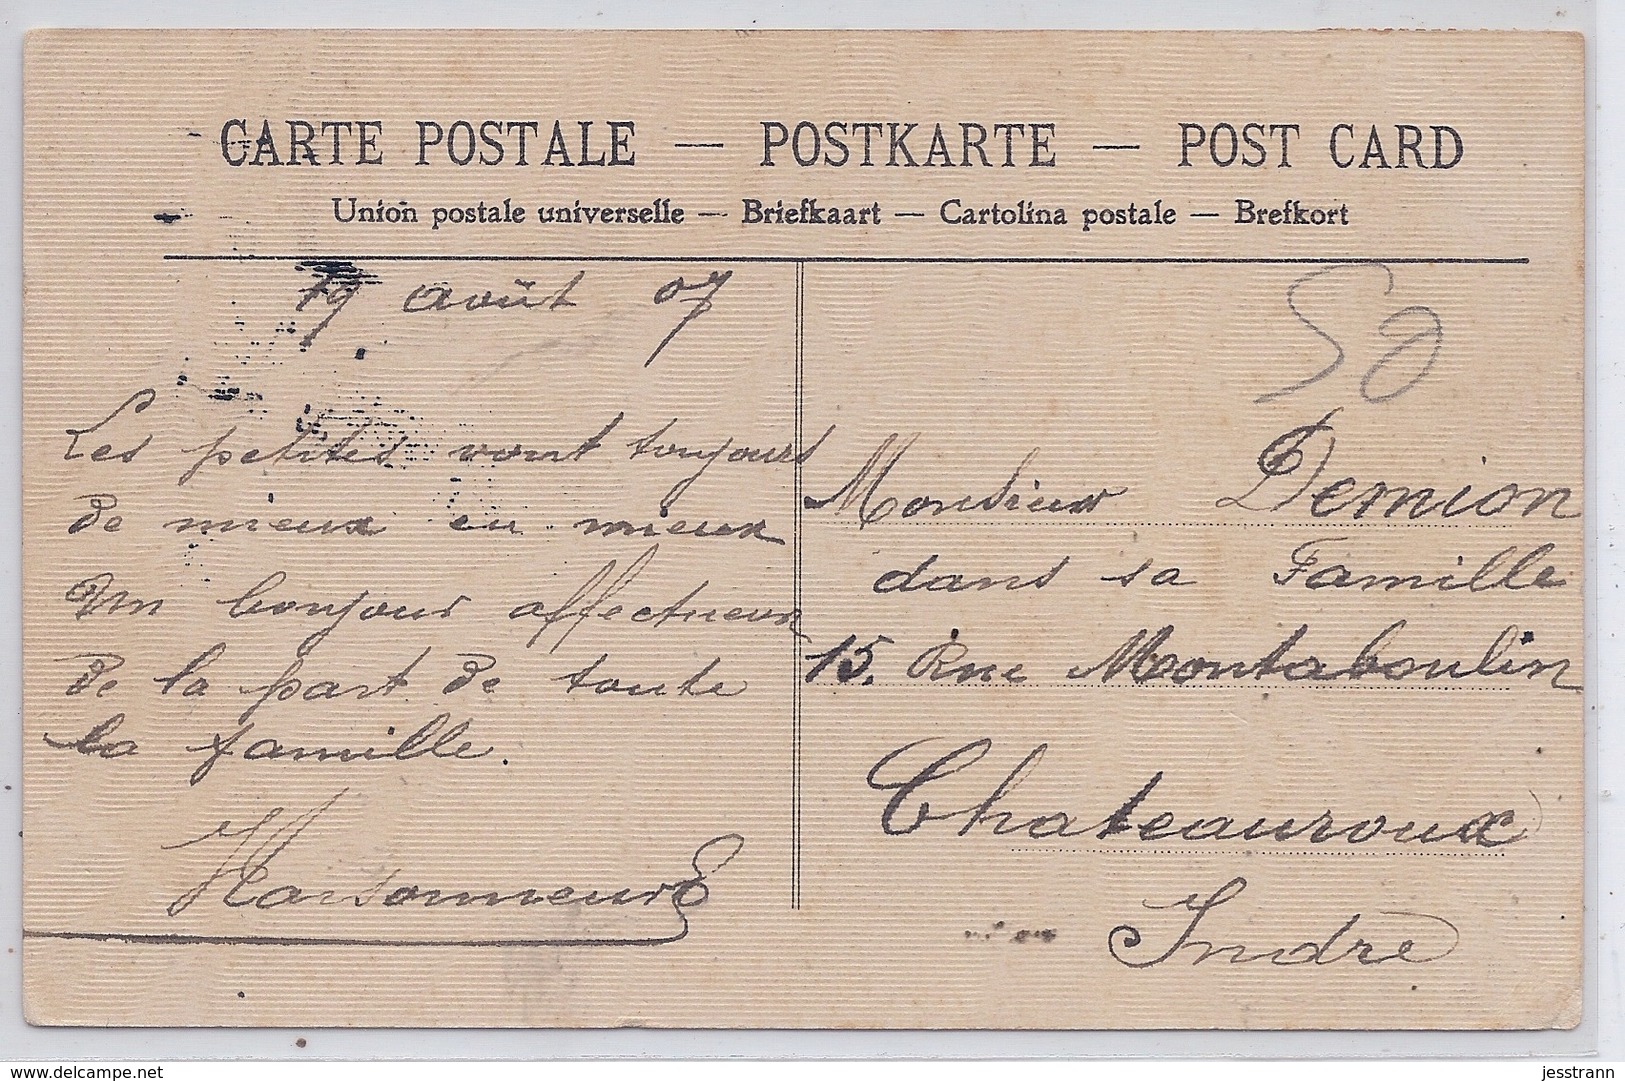 CARTE POSTALE — POSTKARTE — POST CARD
Union postale universelle — Briefkaart — Cartolina postale — Brefkort
19 août 07
Les petites vont toujours
de mieux en mieux
Un bonjour affectueux
de la part de toute
la famille.
50
Monsieur Demion
dans sa Famille
15. Rue Montaboulin
Chateauroux
Indre
www.delcampe.net
jesstrann